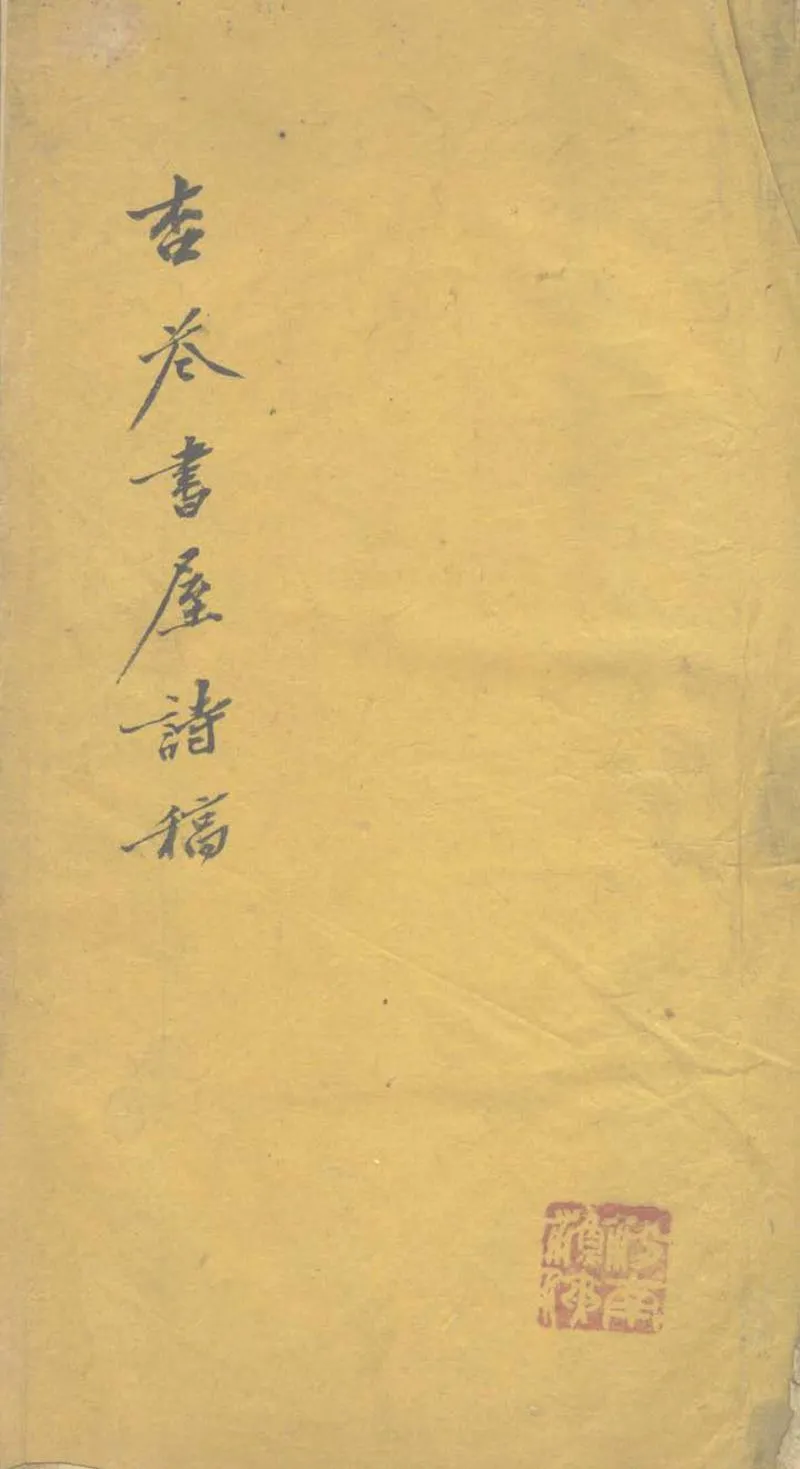 杏卷書屋詩稿